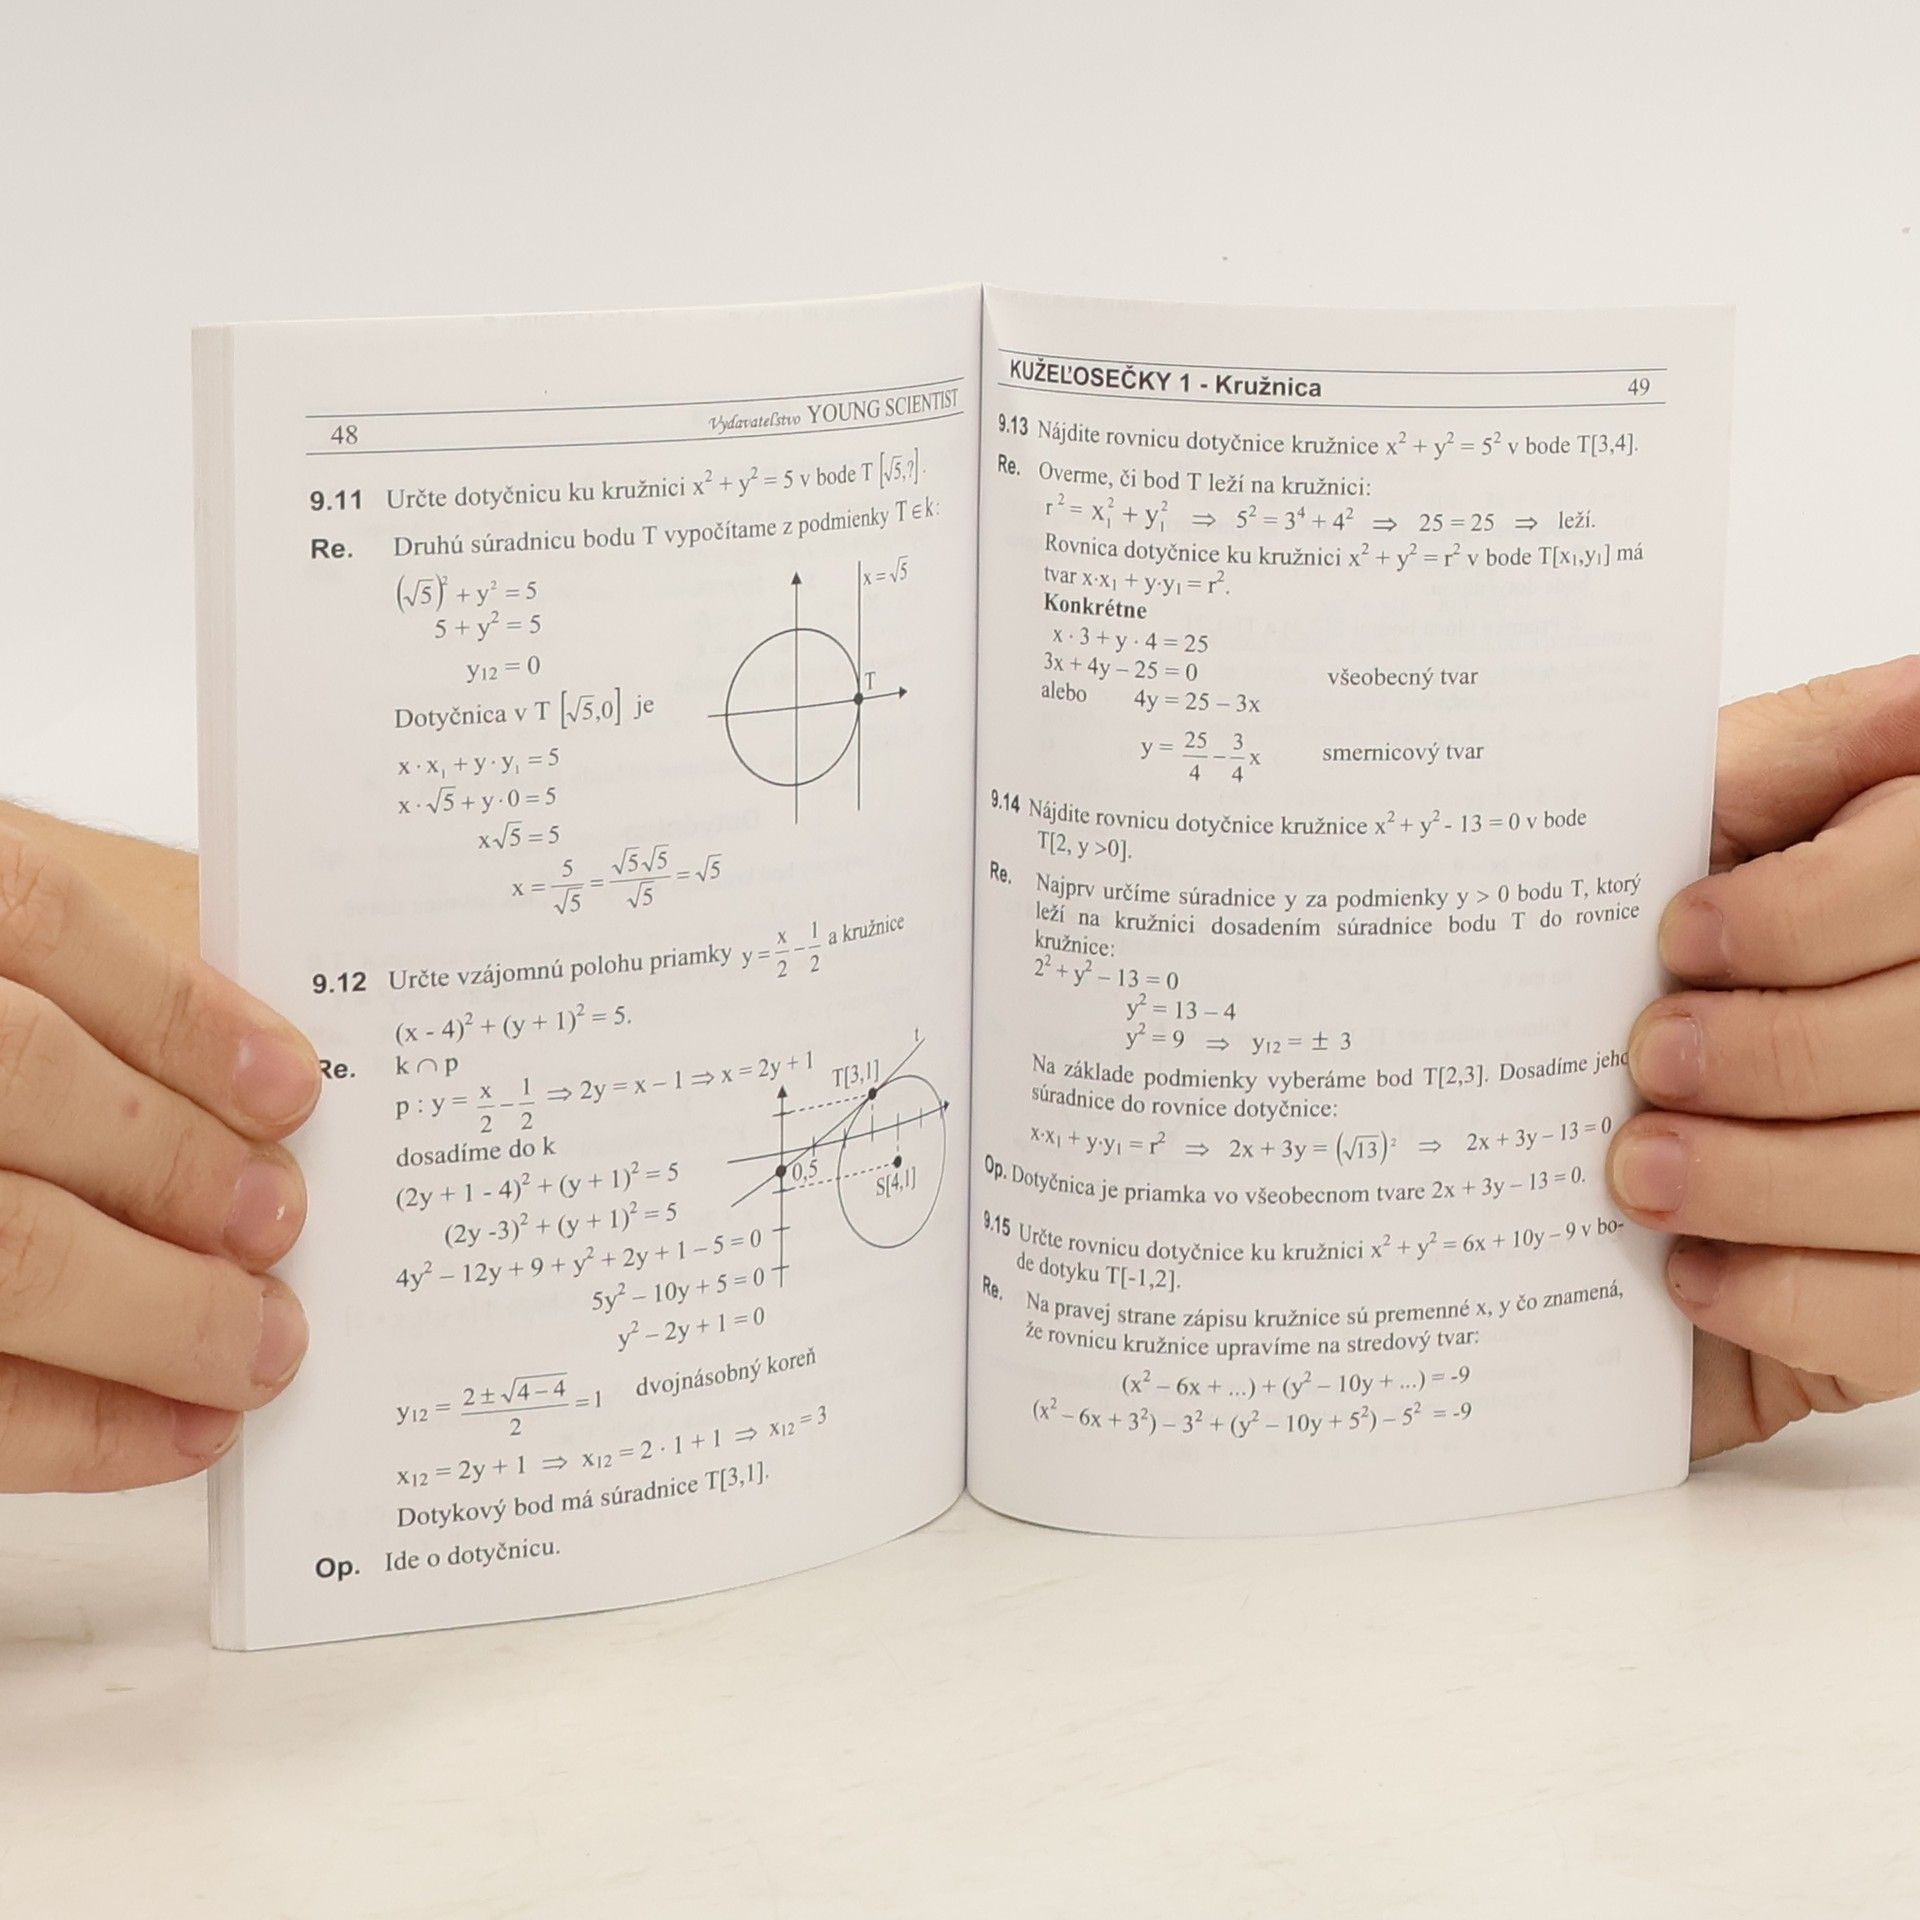 48 Vydavateľstvo YOUNG SCIENTIST
9.11 Určte dotyčnicu ku kružnici x² + y² = 5 v bode T [√5,?].
Re. Druhú súradnicu bodu T vypočítame z podmienky T∈k:
(√5)² + y² = 5
5 + y² = 5
y₁₂ = 0
x = √5
T
Dotyčnica v T [√5,0] je
x · x₁ + y · y₁ = 5
x · √5 + y · 0 = 5
x√5 = 5
x = 5/√5 = √5√5/√5 = √5
9.12 Určte vzájomnú polohu priamky y = x/2 – 1/2 a kružnice
(x - 4)² + (y + 1)² = 5.
Re. k ∩ p
p : y = x/2 – 1/2 ⇒ 2y = x – 1 ⇒ x = 2y + 1
dosadíme do k
(2y + 1 - 4)² + (y + 1)² = 5
(2y -3)² + (y + 1)² = 5
4y² – 12y + 9 + y² + 2y + 1 – 5 = 0
5y² – 10y + 5 = 0
y² – 2y + 1 = 0
t
T[3,1]
0,5
S[4,1]
y₁₂ = (2 ± √4 – 4)/2 = 1 dvojnásobný koreň
x₁₂ = 2y + 1 ⇒ x₁₂ = 2 · 1 + 1 ⇒ x₁₂ = 3
Dotykový bod má súradnice T[3,1].
Op. Ide o dotyčnicu.
KUŽEĽOSEČKY 1 - Kružnica 49
9.13 Nájdite rovnicu dotyčnice kružnice x² + y² = 5² v bode T[3,4].
Re. Overme, či bod T leží na kružnici:
r² = x₁² + y₁² ⇒ 5² = 3⁴ + 4² ⇒ 25 = 25 ⇒ leží.
Rovnica dotyčnice ku kružnici x² + y² = r² v bode T[x₁,y₁] má
tvar x·x₁ + y·y₁ = r².
Konkrétne
x · 3 + y · 4 = 25
3x + 4y – 25 = 0 všeobecný tvar
alebo 4y = 25 – 3x
y = 25/4 – 3/4 x smernicový tvar
9.14 Nájdite rovnicu dotyčnice kružnice x² + y² - 13 = 0 v bode
T[2, y >0].
Re. Najprv určíme súradnice y za podmienky y > 0 bodu T, ktorý
leží na kružnici dosadením súradnice bodu T do rovnice
kružnice:
2² + y² – 13 = 0
y² = 13 – 4
y² = 9 ⇒ y₁₂ = ± 3
Na základe podmienky vyberáme bod T[2,3]. Dosadíme jeho
súradnice do rovnice dotyčnice:
x·x₁ + y·y₁ = r² ⇒ 2x + 3y = (√13)² ⇒ 2x + 3y – 13 = 0
Op. Dotyčnica je priamka vo všeobecnom tvare 2x + 3y – 13 = 0.
9.15 Určte rovnicu dotyčnice ku kružnici x² + y² = 6x + 10y – 9 v bo-
de dotyku T[-1,2].
Re. Na pravej strane zápisu kružnice sú premenné x, y čo znamená,
že rovnicu kružnice upravíme na stredový tvar:
(x² – 6x + ...) + (y² – 10y + ...) = -9
(x² – 6x + 3²) – 3² + (y² – 10y + 5²) – 5² = -9